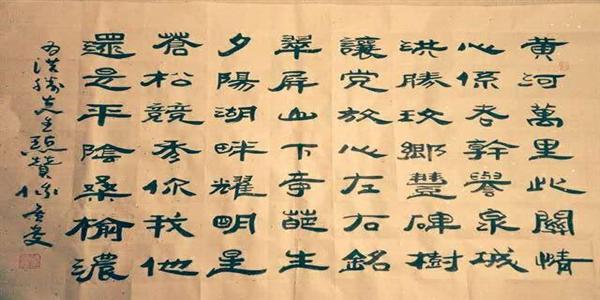 黃河萬里此關情
心係老幹譽泉城
洪勝玫鄉豐碑樹
讓党放心左右銘
翠屏山下奇葩生
夕陽湖畔耀明星
蒼松競秀你我他
還是平陰桑榆濃
为洪勝先生題贊